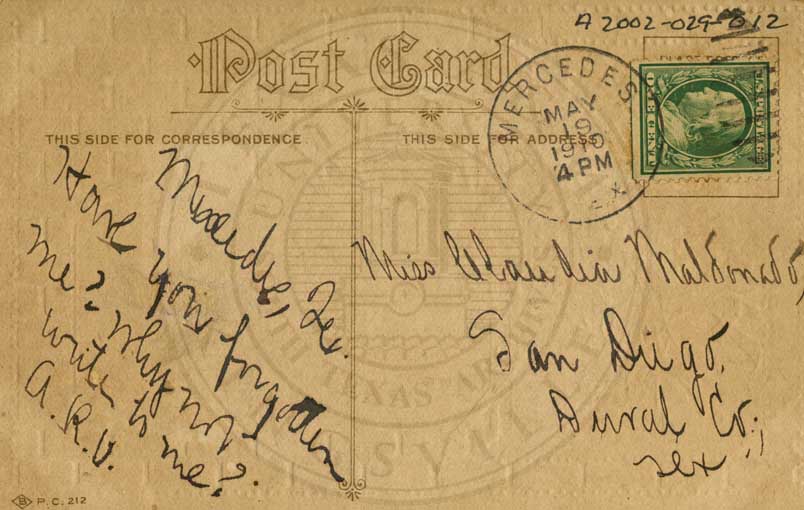 A 2002-029-012
Post Card
MERCEDES
MAY
19
1910
4 PM
TEX.
THIS SIDE FOR CORRESPONDENCE
THIS SIDE FOR ADDRESS
Mercedes, Tex.
Have you forgotten
me? Why not
write to me?
A.R.V.
Miss Claudia Maldonado,
San Diego,
Duval Co.,
Tex
B P.C. 212